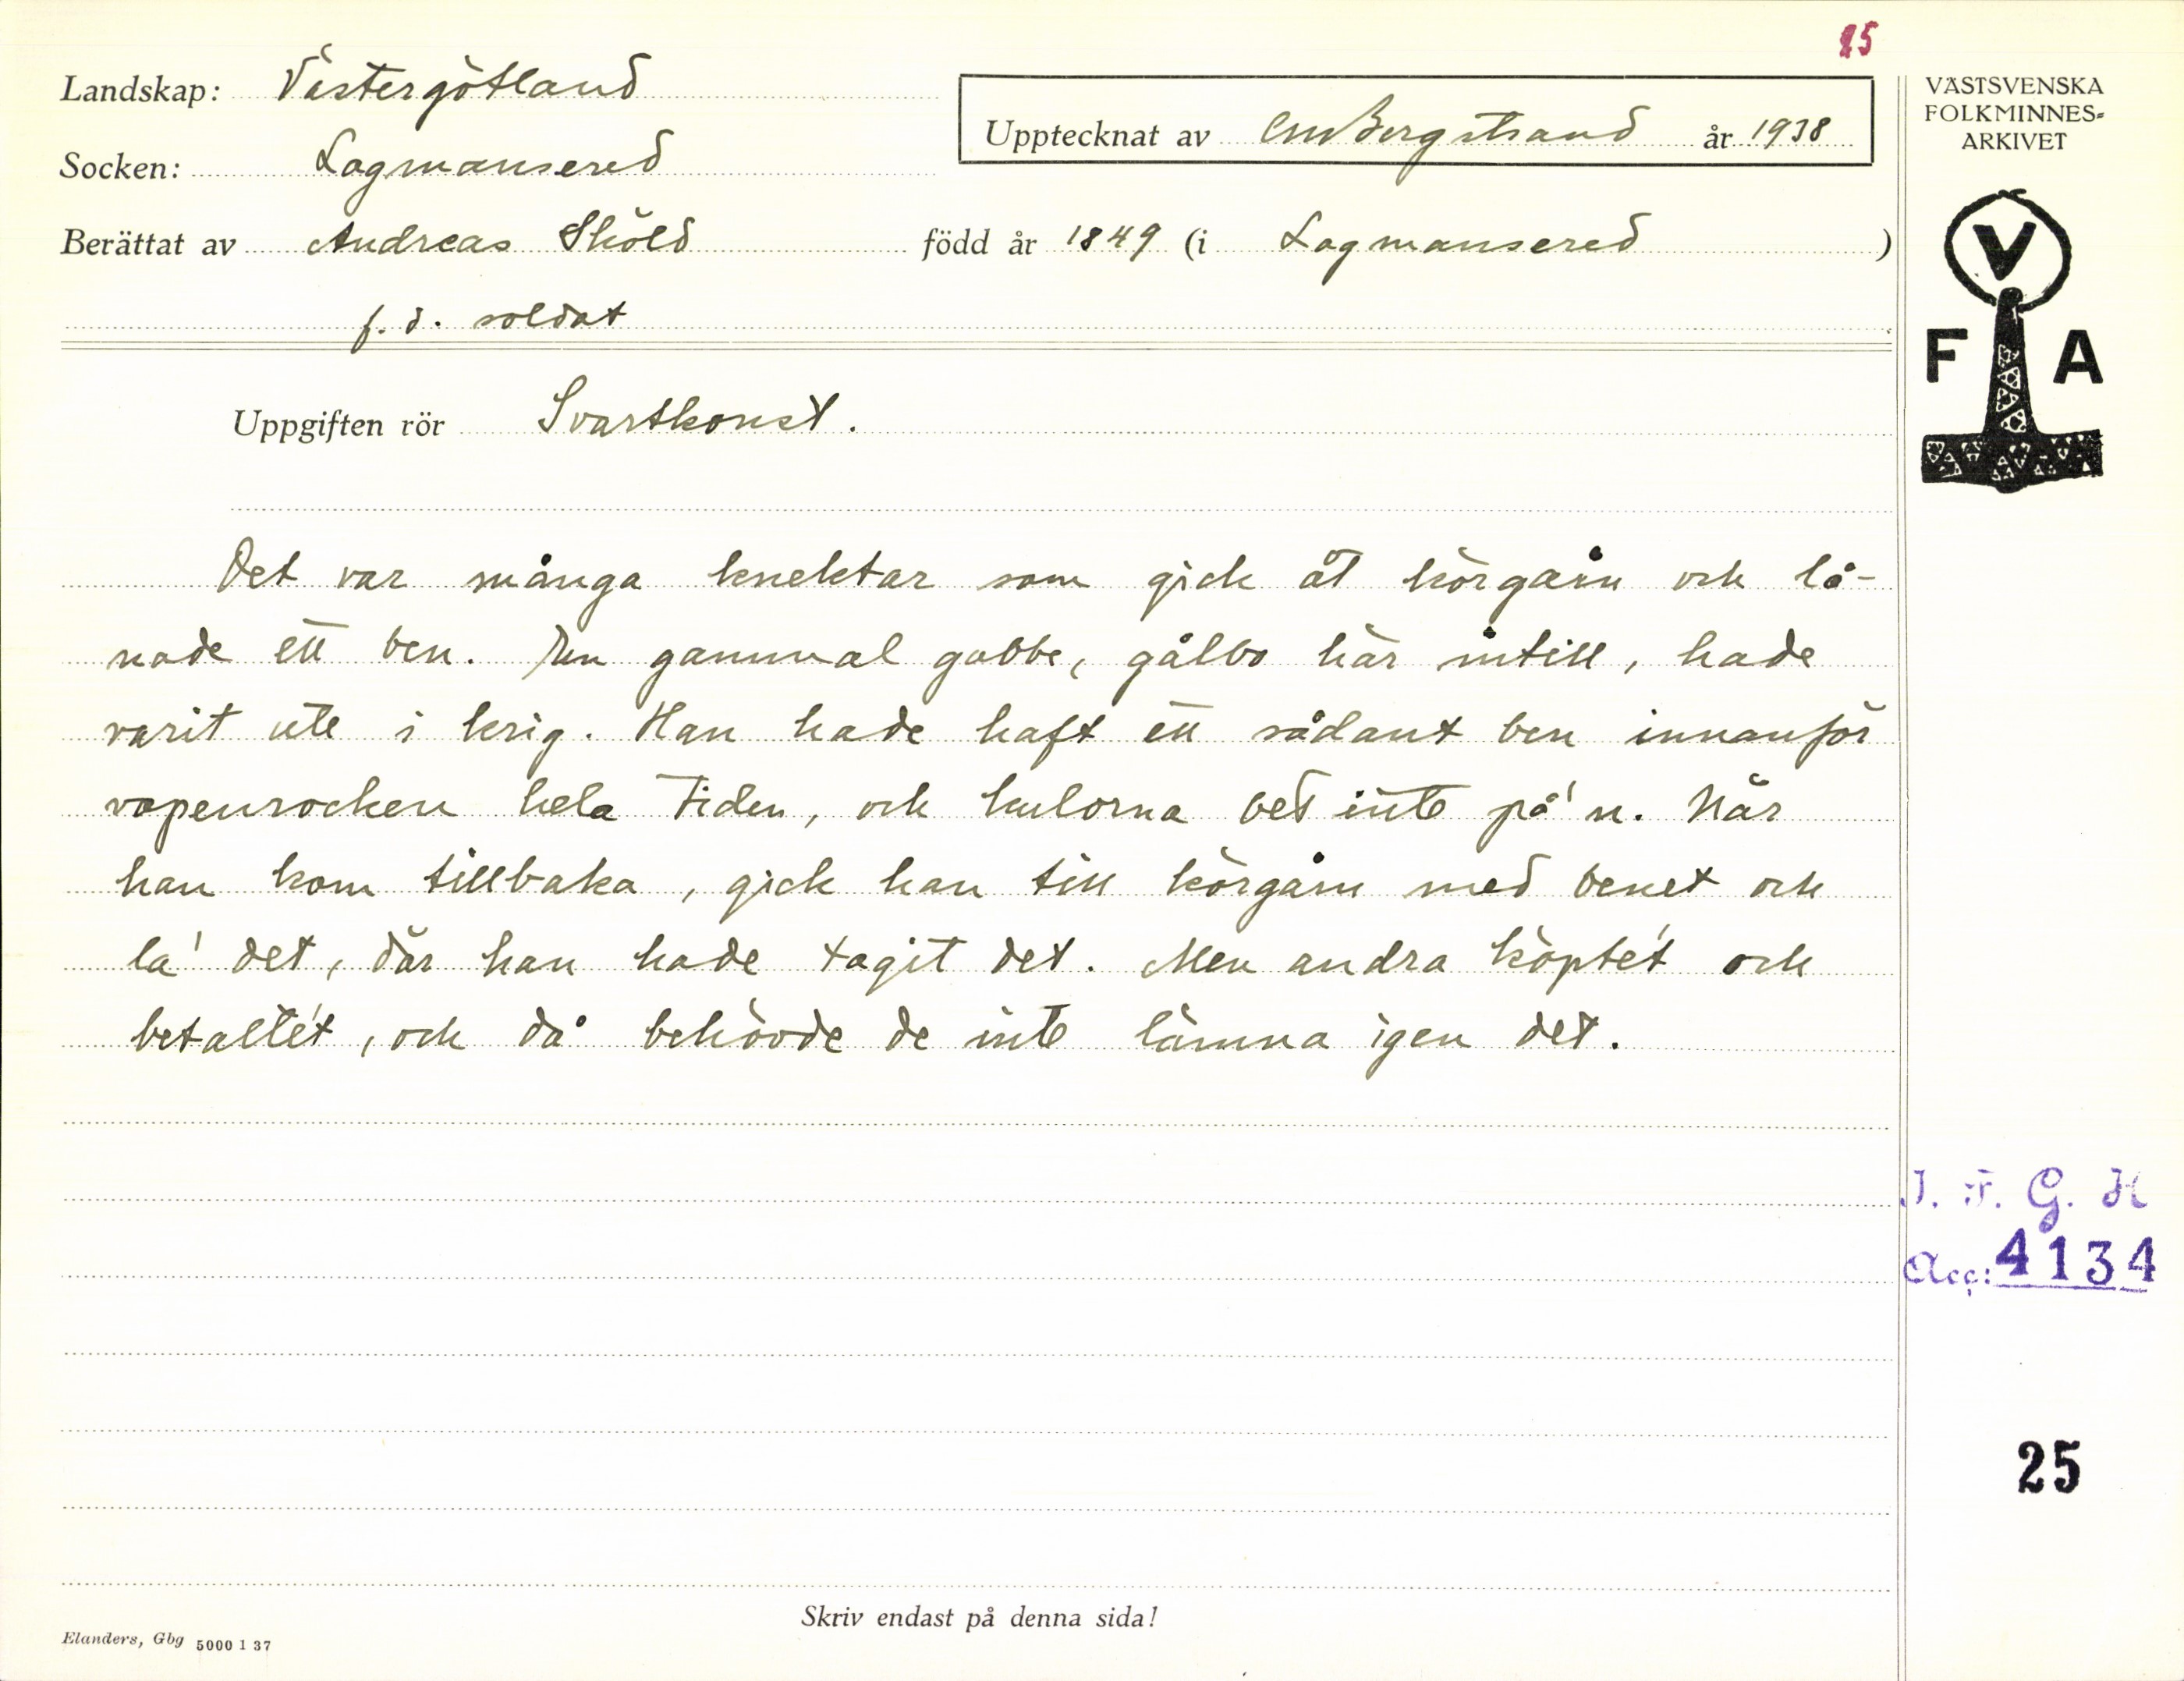 25
Landskap: Västergötland
Upptecknat av CMBergstrand år 1938
VÄSTSVENSKA
FOLKMINNES-
ARKIVET
Socken: Lagmansered
Berättat av Andreas Sköld född år 1849 (i Lagmansered)
f.d. soldat
V
F A
Uppgiften rör Svartkonst.
Det var många knektar som gick åt körgårn och lå-
nade ett ben. En gammal gubbe, gålbo här intill, hade
varit ute i krig. Han hade haft ett sådant ben innanför
vapenrocken hela tiden, och kulorna bet inte på'n. När
han kom tillbaka, gick han till körgårn med benet och
la' det, där han hade tagit det. Men andra köpte't och
betalte't, och då behövde de inte lämna igen det.
I. F. G. H
Acc: 4134
25
Skriv endast på denna sida!
Elanders, Gbg 5000 1 37